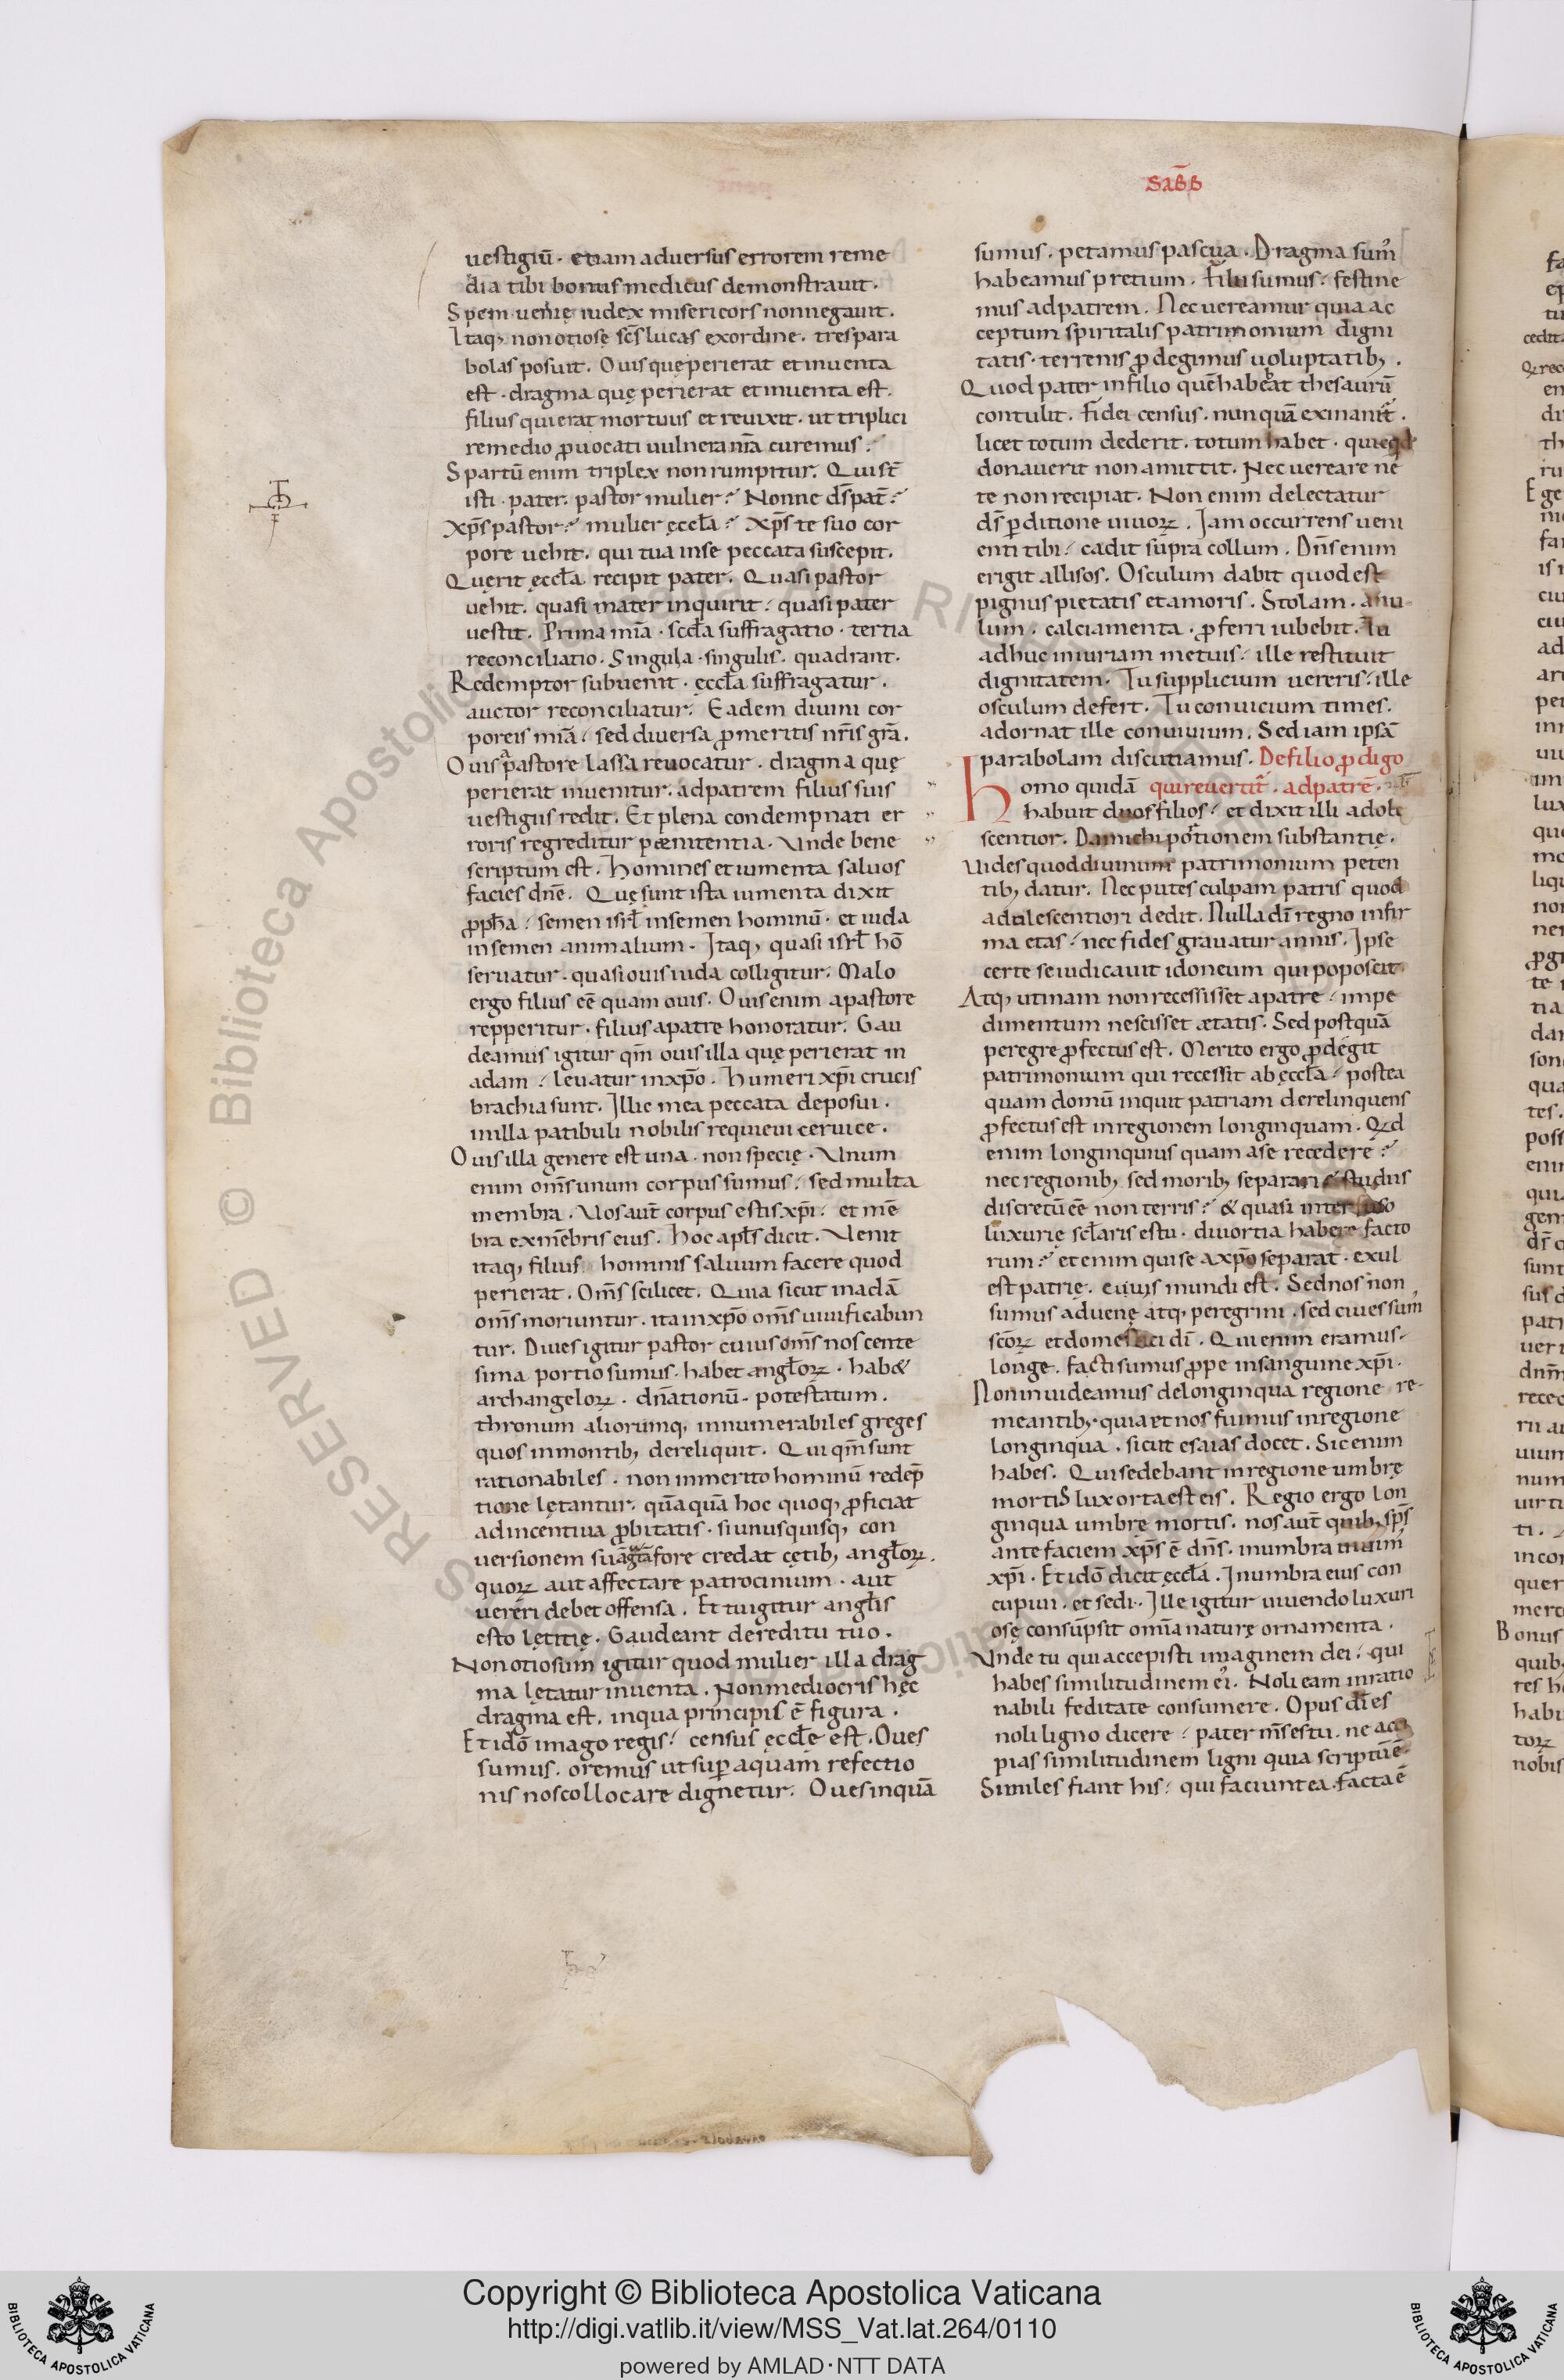 SABB̄
uestigiū. etiam aduersus errorem reme
dia tibi bonus medicus demonstrauit.
Spem uenię iudex misericors non negauit.
Itaq; non otiose sc̄s lucas ex ordine. tres para
bolas posuit. Ouis quę perierat et inuenta
est. dragma quę perierat et inuenta est.
filius qui erat mortuus et reuixit. ut triplici
remedio ꝓuocati uulnera nr̄a curemus.
Spartū enim triplex non rumpitur. Qui st̄
isti. pater. pastor mulier? Nonne ds̄ pat̄?
xp̄s pastor? mulier ęccła? Xp̄s te suo cor
pore uehit. qui tua in se peccata suscepit.
Quęrit ęccła recipit pater. Quasi pastor
uehit. quasi mater inquirit. quasi pater
uestit. Prima mīa. scđa suffragatio. tertia
reconciliatio. Singula singulis. quadrant.
Redemptor subuenit. ęccła suffragatur.
auctor reconciliatur. Eadem diuini cor
poreis mīa. sed diuersa ꝓ meritis nr̄is grā.
Ouis a pastore lassa reuocatur. dragma quę
perierat inuenitur. ad patrem filius suis
uestigiis redit. Et plena condempnati er
roris regreditur pænitentia. Vnde bene
scriptum est. Homines et iumenta saluos
facies dn̄e. Quę sunt ista iumenta dixit
ꝓpħa. semen isrł in semen hominū. et iuda
in semen animalium. Itaq; quasi isrł hō
seruatur. quasi ouis iuda colligitur. Malo
ergo filius eē quam ouis. Ouis enim a pastore
repperitur. filius a patre honoratur. Gau
deamus igitur qm̄ ouis illa quę perierat in
adam. leuatur in xp̄o. Humeri xp̄i crucis
brachia sunt. Illic mea peccata deposui.
in illa patibuli nobilis requieui ceruice.
Ouis illa genere est una. non specię. Vnum
enim om̄s unum corpus sumus. sed multa
membra. Vos aut̄ corpus estis xp̄i. et mē
bra ex mēbris eius. Hoc apłs dicit. Venit
itaq; filius hominis saluum facere quod
perierat. Om̄s scilicet. Quia sicut in adā
om̄s moriuntur. ita in xp̄o om̄s uiuificabun
tur. Diues igitur pastor cuius om̄s nos cente
sima portio sumus. habet angłoꝝ. hab&
archangeloꝝ. dn̄ationū. potestatum.
thronum aliorumq; innumerabiles greges
quos in montib; dereliquit. Qui qm̄ sunt
rationabiles. non inmerito hominū redēp
tione lętantur. quāquā hoc quoq; ꝓficiat
ad incentiua ꝓbitatis. si unusquisq; con
uersionem suā g̃tā fore credat cętib; angłoꝝ.
quoꝝ aut affectare patrocinium. aut
uereri debet offensa. Et tu igitur angłis
esto lętitię. Gaudeant de reditu tuo.
Non otiosum igitur quod mulier illa drag
ma lętatur inuenta. Non mediocris hęc
dragma est. in qua principis ē figura.
Et idō imago regis. census ęccłę est. Oues
sumus. oremus ut suꝑ aquam refectio
nis nos collocare dignetur. Oues inquā
sumus. petamus pascua. Dragma sum᷒
habeamus pretium. filii sumus. festine
mus ad patrem. Nec uereamur quia ac
ceptum spiritalis patrimonium digni
tatis. terrenis ꝓdegimus uoluptatib;.
Quod pater in filio quē habebat thesaurū
contulit. fidei census. nunquā exinanit̄.
licet totum dederit. totum habet. qui qd̄
donauerit non amittit. Nec uereare ne
te non recipiat. Non enim delectatur
ds̄ ꝑditione uiuoꝝ. Iam occurrens ueni
enti tibi. cadit supra collum. Dn̄s enim
erigit allisos. Osculum dabit quod est
pignus pietatis et amoris. Stolam. anu
lum. calciamenta. ꝓferri iubebit. Tu
adhuc iniuriam metuis. ille restituit
dignitatem. Tu supplicium uereris. ille
osculum defert. Tu conuicium times.
adornat ille conuiuium. Sed iam ipsā
parabolam discutiamus. De filio ꝓdigo
Homo quidā qui reuertit̄. ad patrē.
habuit duos filios. et dixit illi adole
scentior. Da michi portionem substantię.
Vides quod diuinum patrimonium peten
tib; datur. Nec putes culpam patris quod
adulescentiori dedit. Nulla dī regno infir
ma etas. nec fides grauatur annis. Ipse
certe se iudicauit idoneum qui poposcit.
Atq; utinam non recessisset a patre. impe
dimentum nescisset ætatis. Sed postquā
peregre ꝓfectus est. Merito ergo ꝓdegit
patrimonium qui recessit ab ęccła. postea
quam domū inquit patriam derelinquens
ꝓfectus est in regionem longinquam. Qꝫd
enim longinquius quam a se recedere?
nec regionib; sed morib; separari. studiis
discretū eē non terris? & quasi interfuso
luxurię scłaris estu. diuortia habere facto
rum? et enim qui se a xp̄o separat. exul
est patrię. ciuis mundi est. Sed nos non
sumus aduenę atq; peregrini. sed ciues sum᷒
sc̄oꝝ et domestici dī. Qui enim eramus
longe. facti sumus ꝓpe in sanguine xp̄i.
Non inuideamus de longinqua regione re
meantib;. quia et nos fuimus in regione
longinqua. sicut esaias docet. Sic enim
habes. Qui sedebant in regione umbrę
mortis lux orta est eis. Regio ergo lon
ginqua umbrę mortis. nos aut̄ quib; sps̄
ante faciem xp̄s ē dn̄s. in umbra uiuim᷒
xp̄i. Et idō dicit ęccła. In umbra eius con
cupiui. et sedi. Ille igitur uiuendo luxuri
osę consūpsit omīa naturę ornamenta.
Vnde tu qui accepisti imaginem dei. qui
habes similitudinem ei᷒. Noli eam inratio
nabili feditate consumere. Opus dī es
noli ligno dicere. pater m̄s es tu. ne acci
pias similitudinem ligni quia scriptū ē.
Similes fiant his. qui faciunt ea. facta ē
Copyright © Biblioteca Apostolica Vaticana
http://digi.vatlib.it/view/MSS_Vat.lat.264/0110
powered by AMLAD·NTT DATA